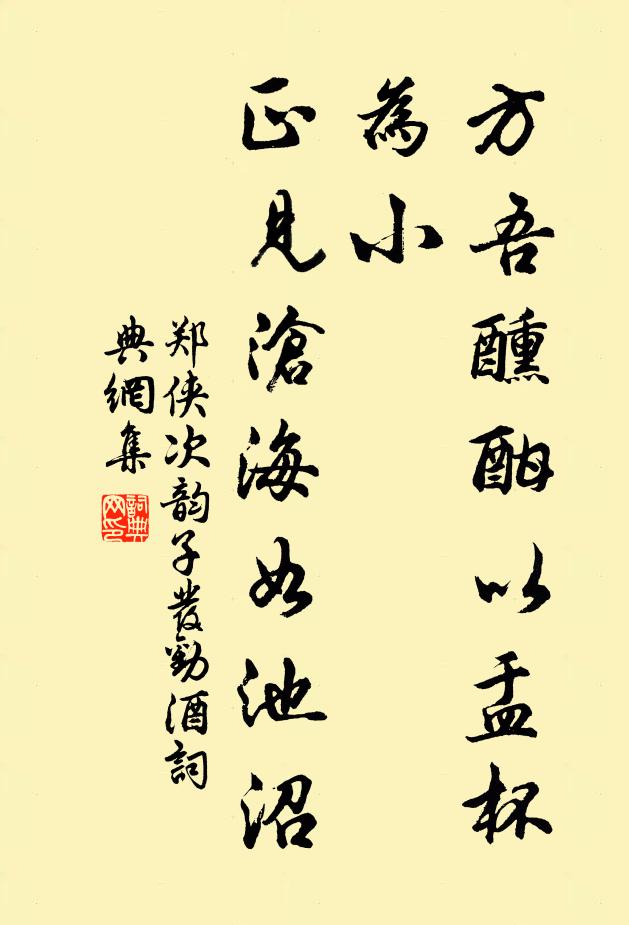 方吾醺酣以盂杯
為小
正見滄海如池沼
郑侠次韵子發勸酒詞
典網集
詞典
网印